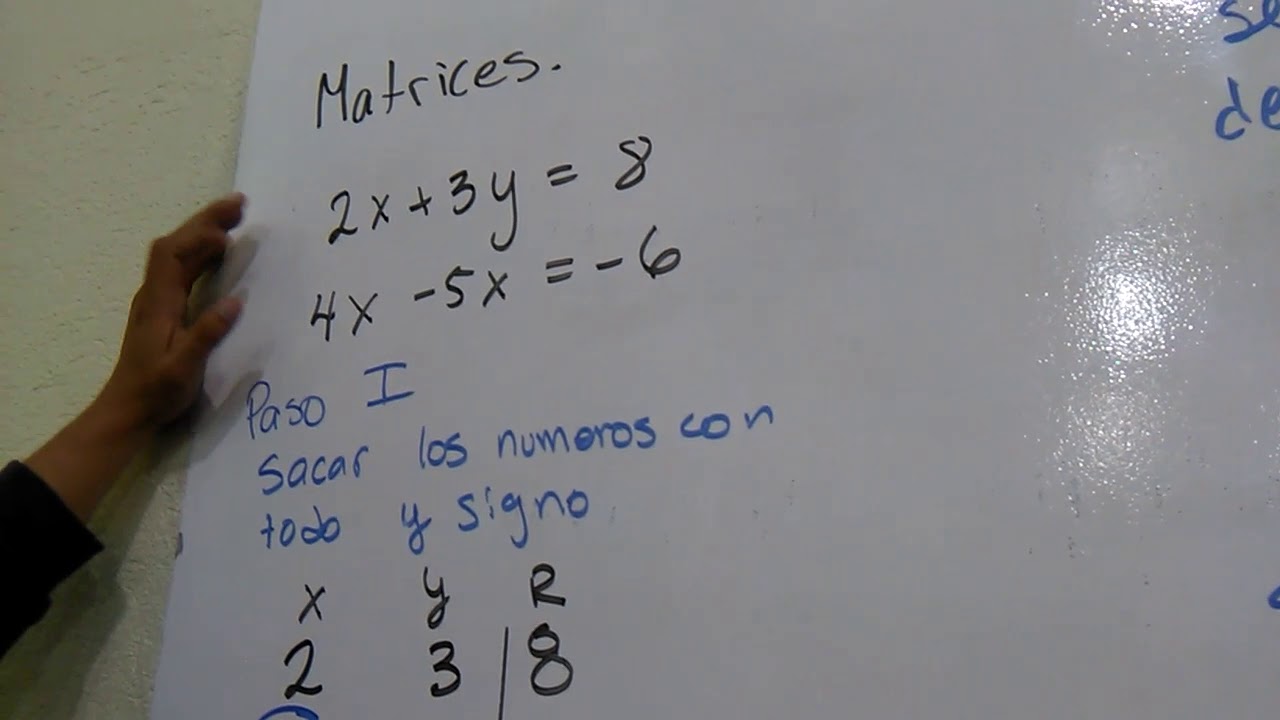 Matrices.
2x+3y = 8
4x -5x = -6
Paso I
sacar los numeros con
todo y signo
x y R
2 3 | 8
se
de